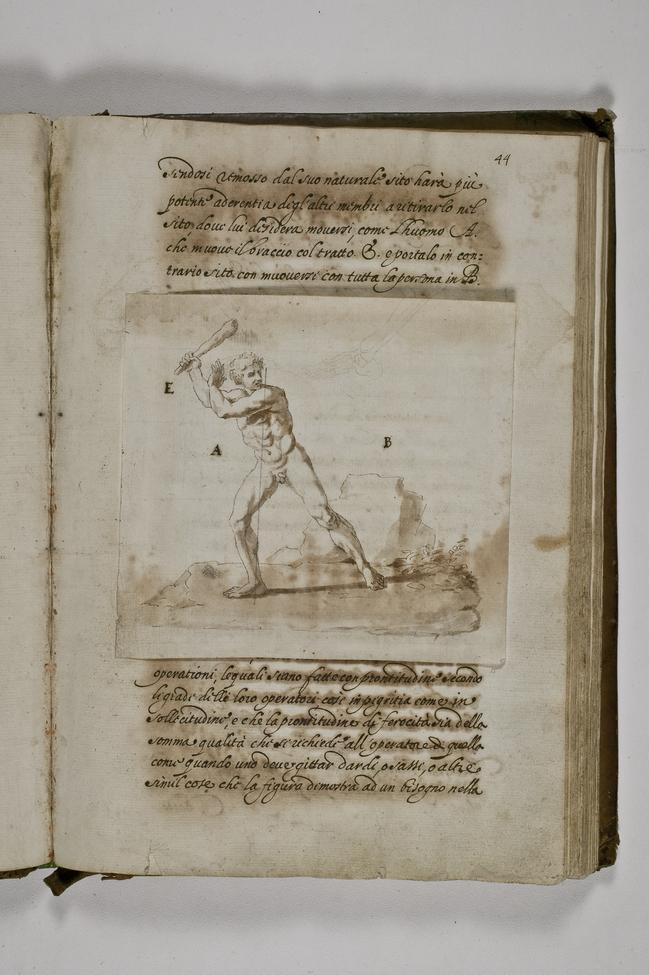 44
sendosi rimosso dal suo naturale sito harà più
potente aderentia degl'altri membri a ritirarlo nel
sito, doue lui desidera mouersi, come l'huomo A.
che muoue il braccio col tratto E. e portalo in con:
trario sito, con muouersi con tutta la persona in B.
E
A
B
operationi, lequali siano fatte con prontitudine secondo
li gradi delle loro operatori cosi in pigritia come in
sollecitudine e che la prontitudine di ferocità sia della
somma qualità che se richiede all operatore di quella
come quando uno deue gittar dardi, o sassi, o altre
simil cose, che la figura dimostra ad un bisogno nella